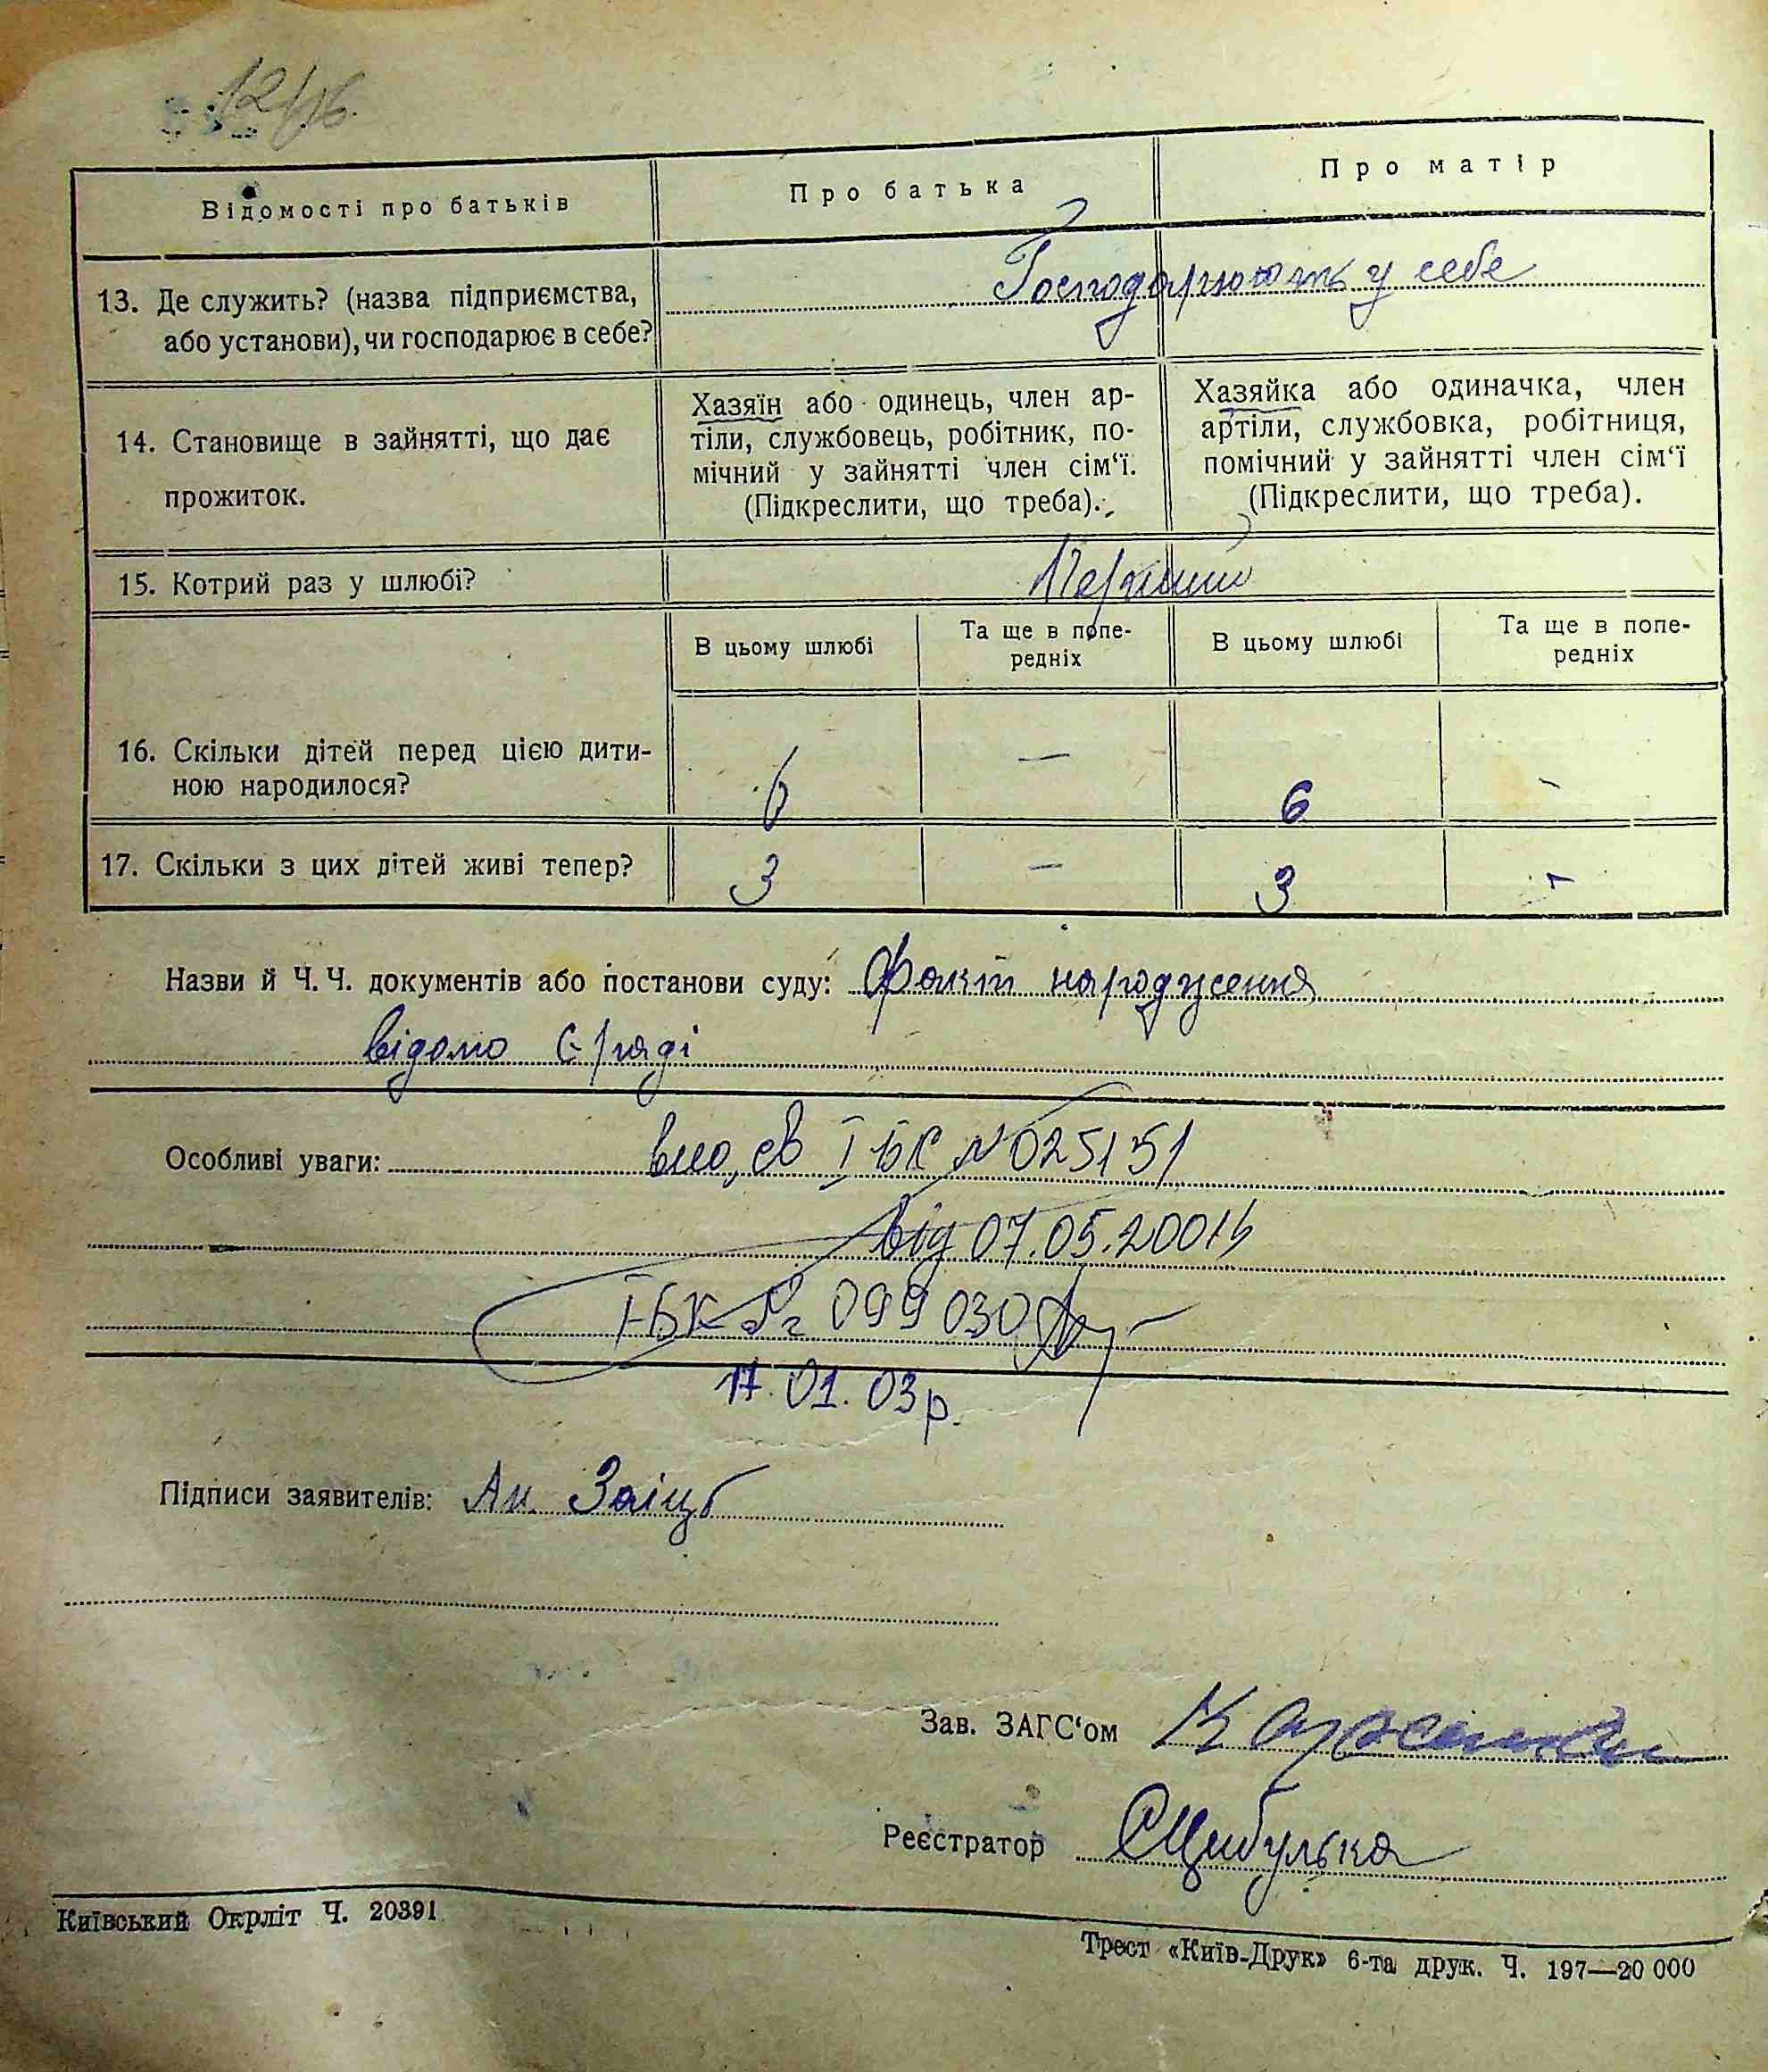 12/16.
Відомості про батьків
Про батька
Про матір
13. Де служить? (назва підприємства,
або установи), чи господарює в себе?
Господарюють у себе
14. Становище в зайнятті, що дає
прожиток.
Хазяїн або одинець, член ар-
тіли, службовець, робітник, по-
мічний у зайнятті член сім‘ї.
(Підкреслити, що треба).
Хазяйка або одиначка, член
артіли, службовка, робітниця,
помічний у зайнятті член сім‘ї
(Підкреслити, що треба).
15. Котрий раз у шлюбі?
В цьому шлюбі
Та ще в попе-
редніх
В цьому шлюбі
Та ще в попе-
редніх
16. Скільки дітей перед цією дити-
ною народилося?
6 — 6 -
17. Скільки з цих дітей живі тепер?
3 — 3 -
Назви й Ч. Ч. документів або постанови суду: Факт народження
відомо с/раді
Особливі уваги: св І БК № 025151
від 07.05.2001
І-БК № 099030
17.01.03р.
Підписи заявителів: Ан. Заіць
Зав. ЗАГС‘ом
Реєстратор Цибулька
Київський Окрліт Ч. 20391
Трест «Київ-Друк» 6-та друк. Ч. 197—20 000